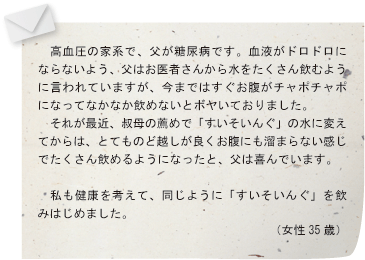 高血圧の家系で、父が糖尿病です。血液がドロドロに
ならないよう、父はお医者さんから水をたくさん飲むよう
に言われていますが、今まではすぐお腹がチャポチャポ
になってなかなか飲めないとボヤいておりました。
それが最近、叔母の薦めで「すいそいんぐ」の水に変え
てからは、とてものど越しが良くお腹にも溜まらない感じ
でたくさん飲めるようになったと、父は喜んでいます。
私も健康を考えて、同じように「すいそいんぐ」を飲
みはじめました。
（女性 35 歳）